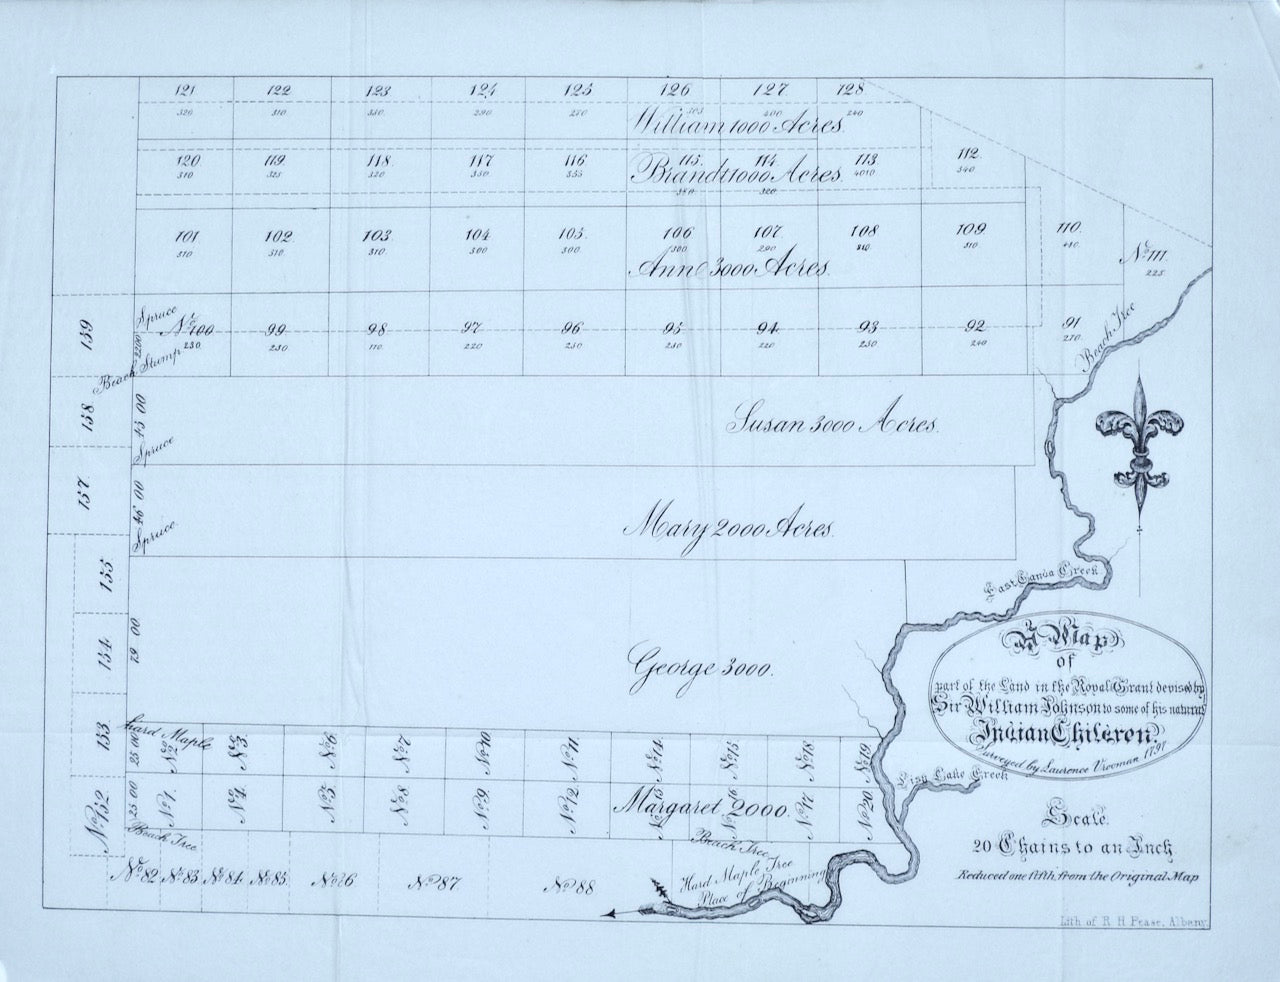 121 122 123 124 125 126 127 128
320 310 330 290 270 303 400 240
William 1000 Acres.
120 119 118 117 116 115. 114 113 112.
310 325 320 350 355 340
Brandt 1000 Acres.
350 320
101 102 103 104 105. 106 107 108 109 110.
310 310 310 300 300 300 290 310 310
No. 111.
225
Ann 3000 Acres.
159
Spruce
No. 100 99 98 97 96 95 94 93 92 91
230 230 220 250 250 220 250 240 270
Beach Tree
Beach Stump
158
45 00
Susan 3000 Acres.
Spruce
157
46 00
Mary 2000 Acres.
Spruce
155
154
79 00
George 3000.
East Canda Creek
A Map
of
part of the Land in the Royal Grant devised by
Sir William Johnson to some of his natural
Indian Children.
Surveyed by Laurence Vrooman 1797
153
hard Maple
25 00
No. 2. No. 3. No. 6. No. 7 No. 10 No. 11. No. 14 No. 15 No. 18 No. 19
No. 152
25 00
No. 1. No. 4. No. 5 No. 8 No. 9. No. 12 No. 17 No. 20
Margaret 2000.
Lake Creek
Beach Tree
Beach Tree
No. 82 No. 83 No. 84 No. 85 No. 86 No. 87 No. 88
Hard Maple Tree
Place of Beginning
Scale.
20 Chains to an Inch
Reduced one fifth from the Original Map
Lith of R H Pease, Albany